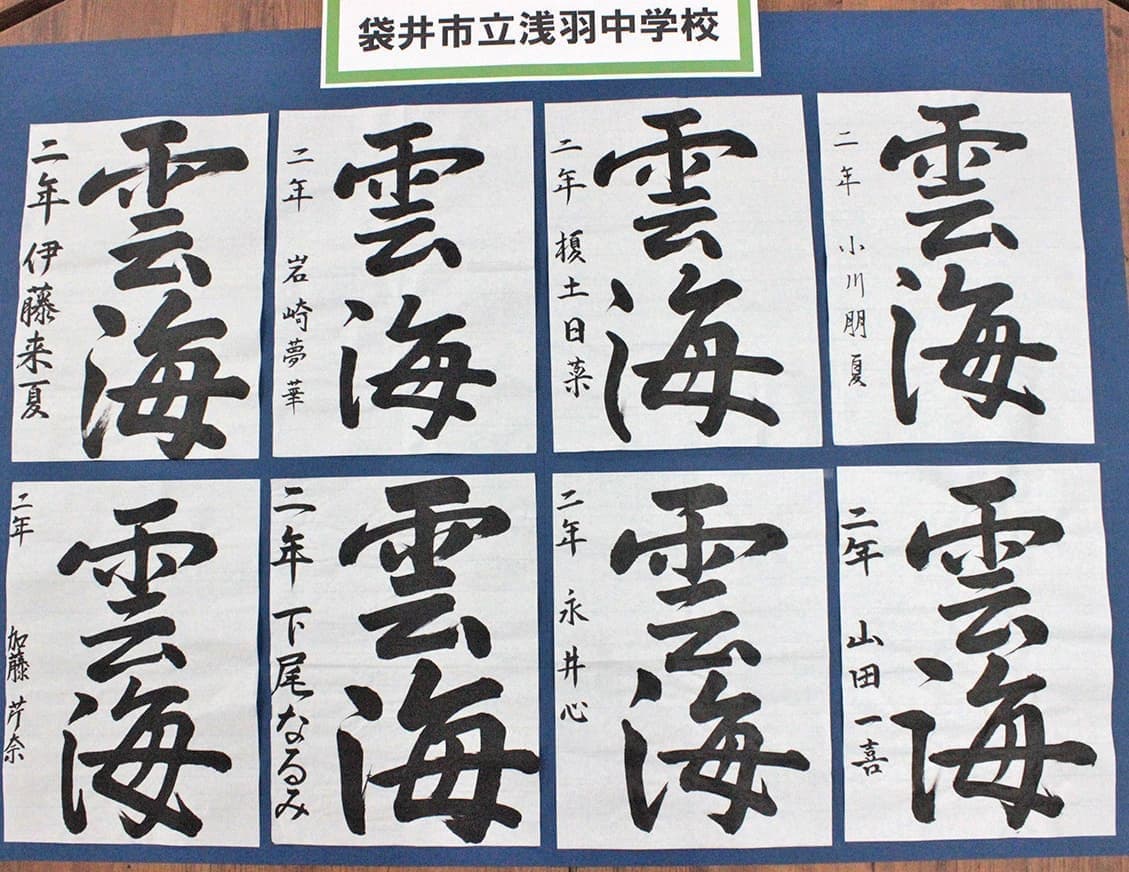 袋井市立浅羽中学校
雲海
二年 小川朋夏
雲海
二年 榎土日菜
雲海
二年 岩崎夢華
雲海
二年 伊藤来夏
雲海
二年 山田一喜
雲海
二年 永井心
雲海
二年 下尾なるみ
雲海
二年 加藤芹奈